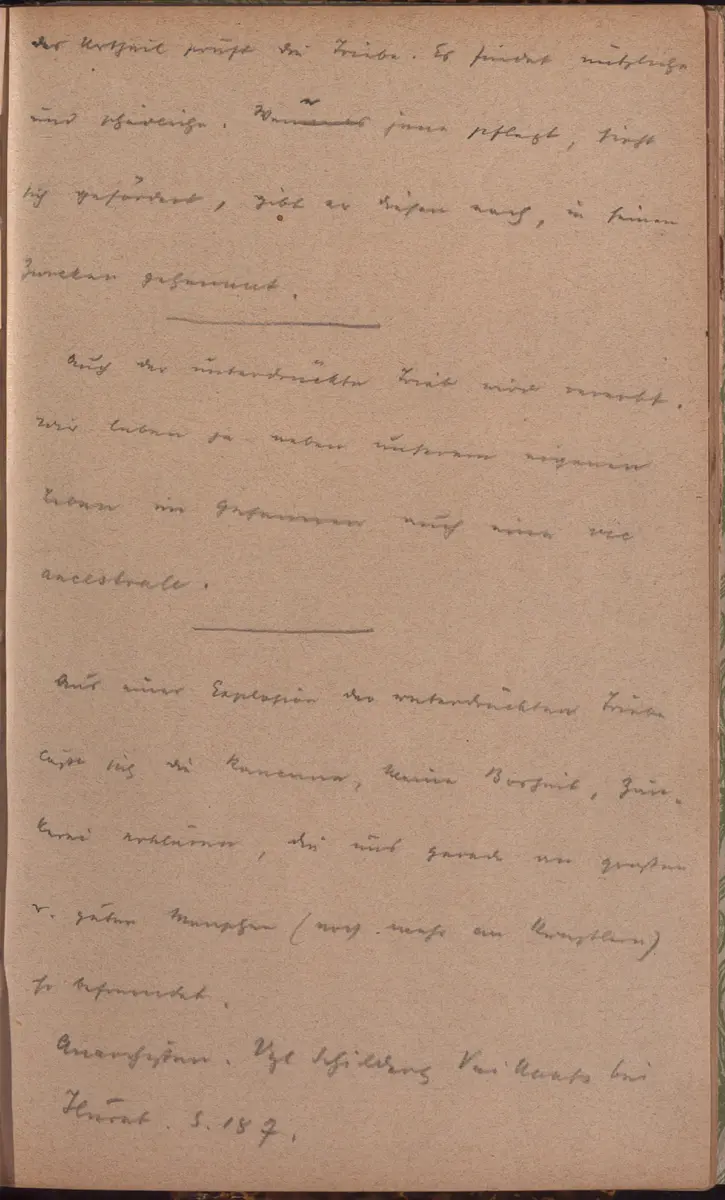 das Urtheil prüft die Triebe. Es findet nützliche
und schädliche. Wer jene pflegt, sieht
sich gefördert, gibt er diesen nach, in seinen
Zwecken gehemmt.
Auch der unterdrückte Trieb wird vererbt.
Wir leben ja neben unserem eigenen
Leben im Geheimen auch eine vie
ancestrale.
Aus einer Explosion der unterdrückten Triebe
läßt sich die Rancune, kleine Bosheit, Zän-
kerei erklären, die uns gerade an großen
u. guten Menschen (noch mehr an Künstlern)
so befremdet.
Anarchisten. Vgl Schilderg Vaillants bei
S. 187.